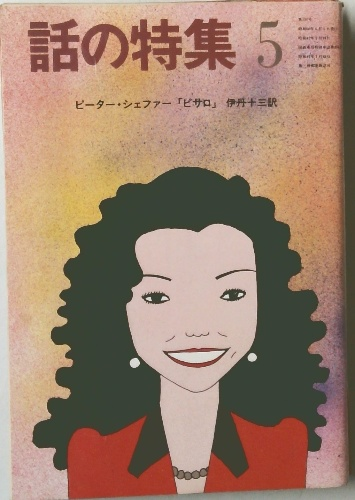 話の特集 5
ピーター・シェファー「ピサロ」 伊丹十三訳